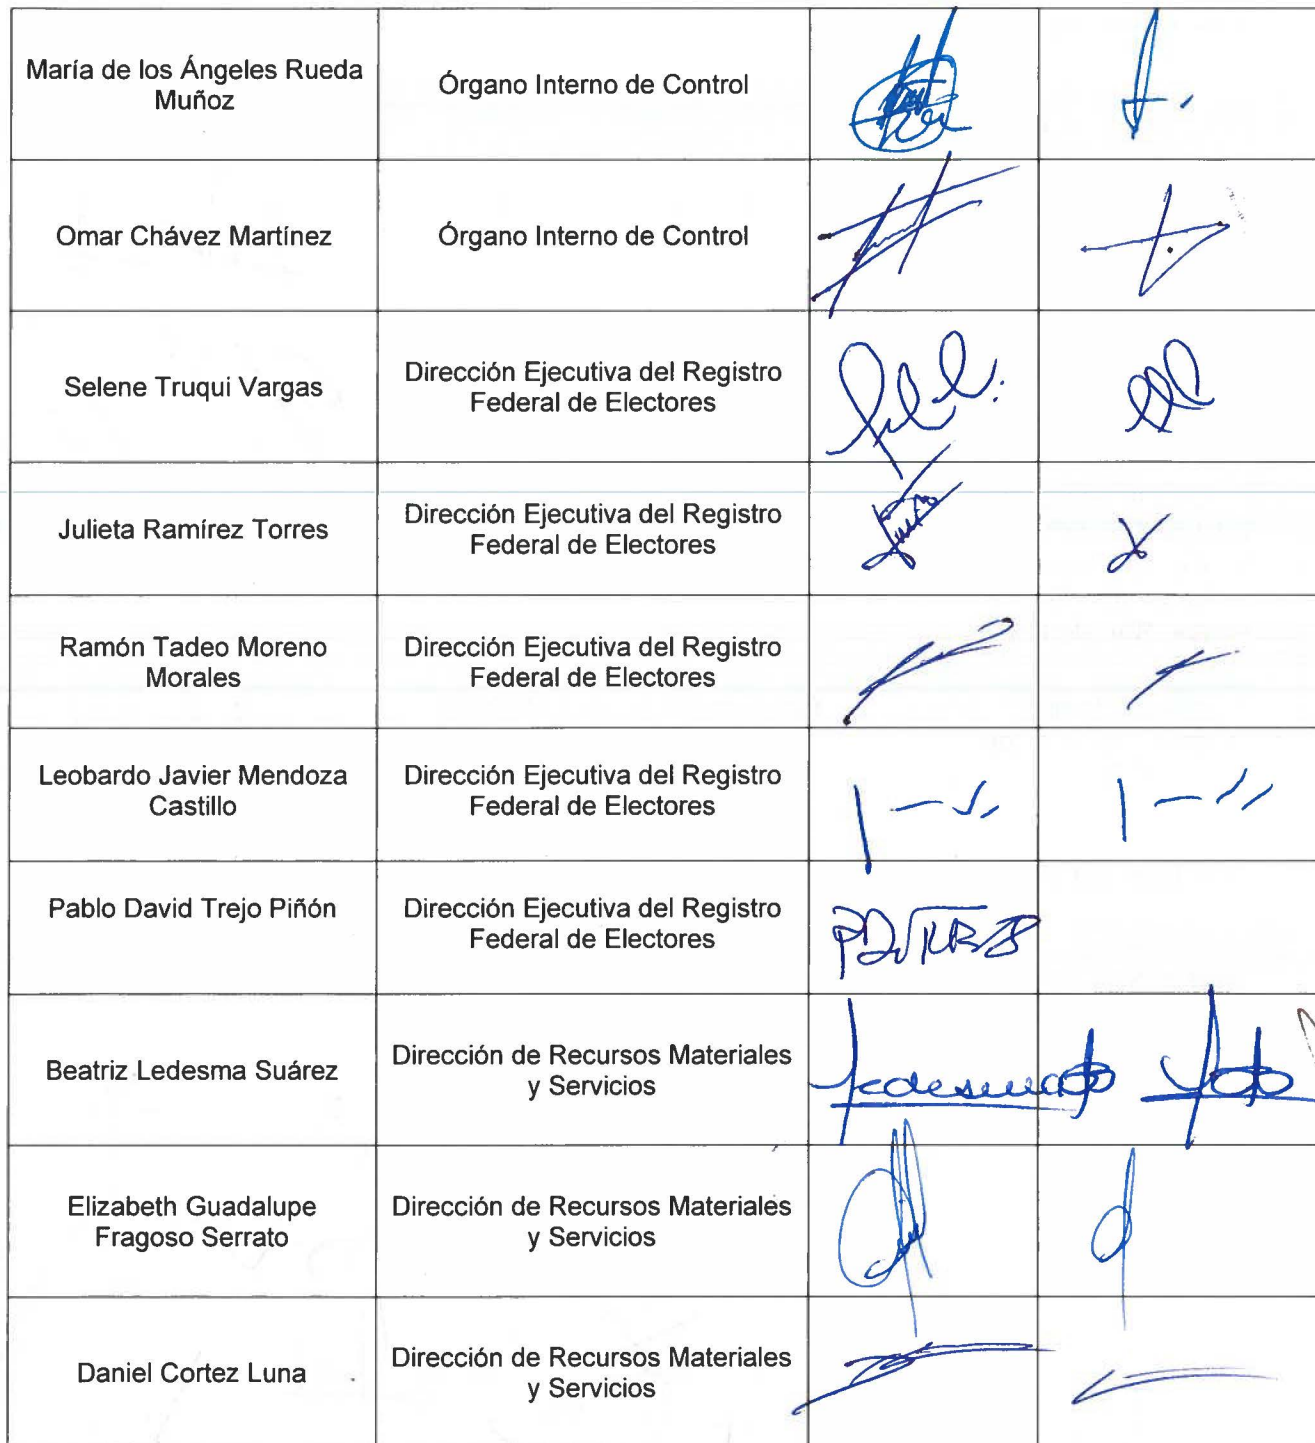 María de los Ángeles Rueda
Muñoz
Órgano Interno de Control
Omar Chávez Martínez
Órgano Interno de Control
Selene Truqui Vargas
Dirección Ejecutiva del Registro
Federal de Electores
Julieta Ramírez Torres
Dirección Ejecutiva del Registro
Federal de Electores
Ramón Tadeo Moreno
Morales
Dirección Ejecutiva del Registro
Federal de Electores
Leobardo Javier Mendoza
Castillo
Dirección Ejecutiva del Registro
Federal de Electores
Pablo David Trejo Piñón
Dirección Ejecutiva del Registro
Federal de Electores
Beatriz Ledesma Suárez
Dirección de Recursos Materiales
y Servicios
Elizabeth Guadalupe
Fragoso Serrato
Dirección de Recursos Materiales
y Servicios
Daniel Cortez Luna
Dirección de Recursos Materiales
y Servicios